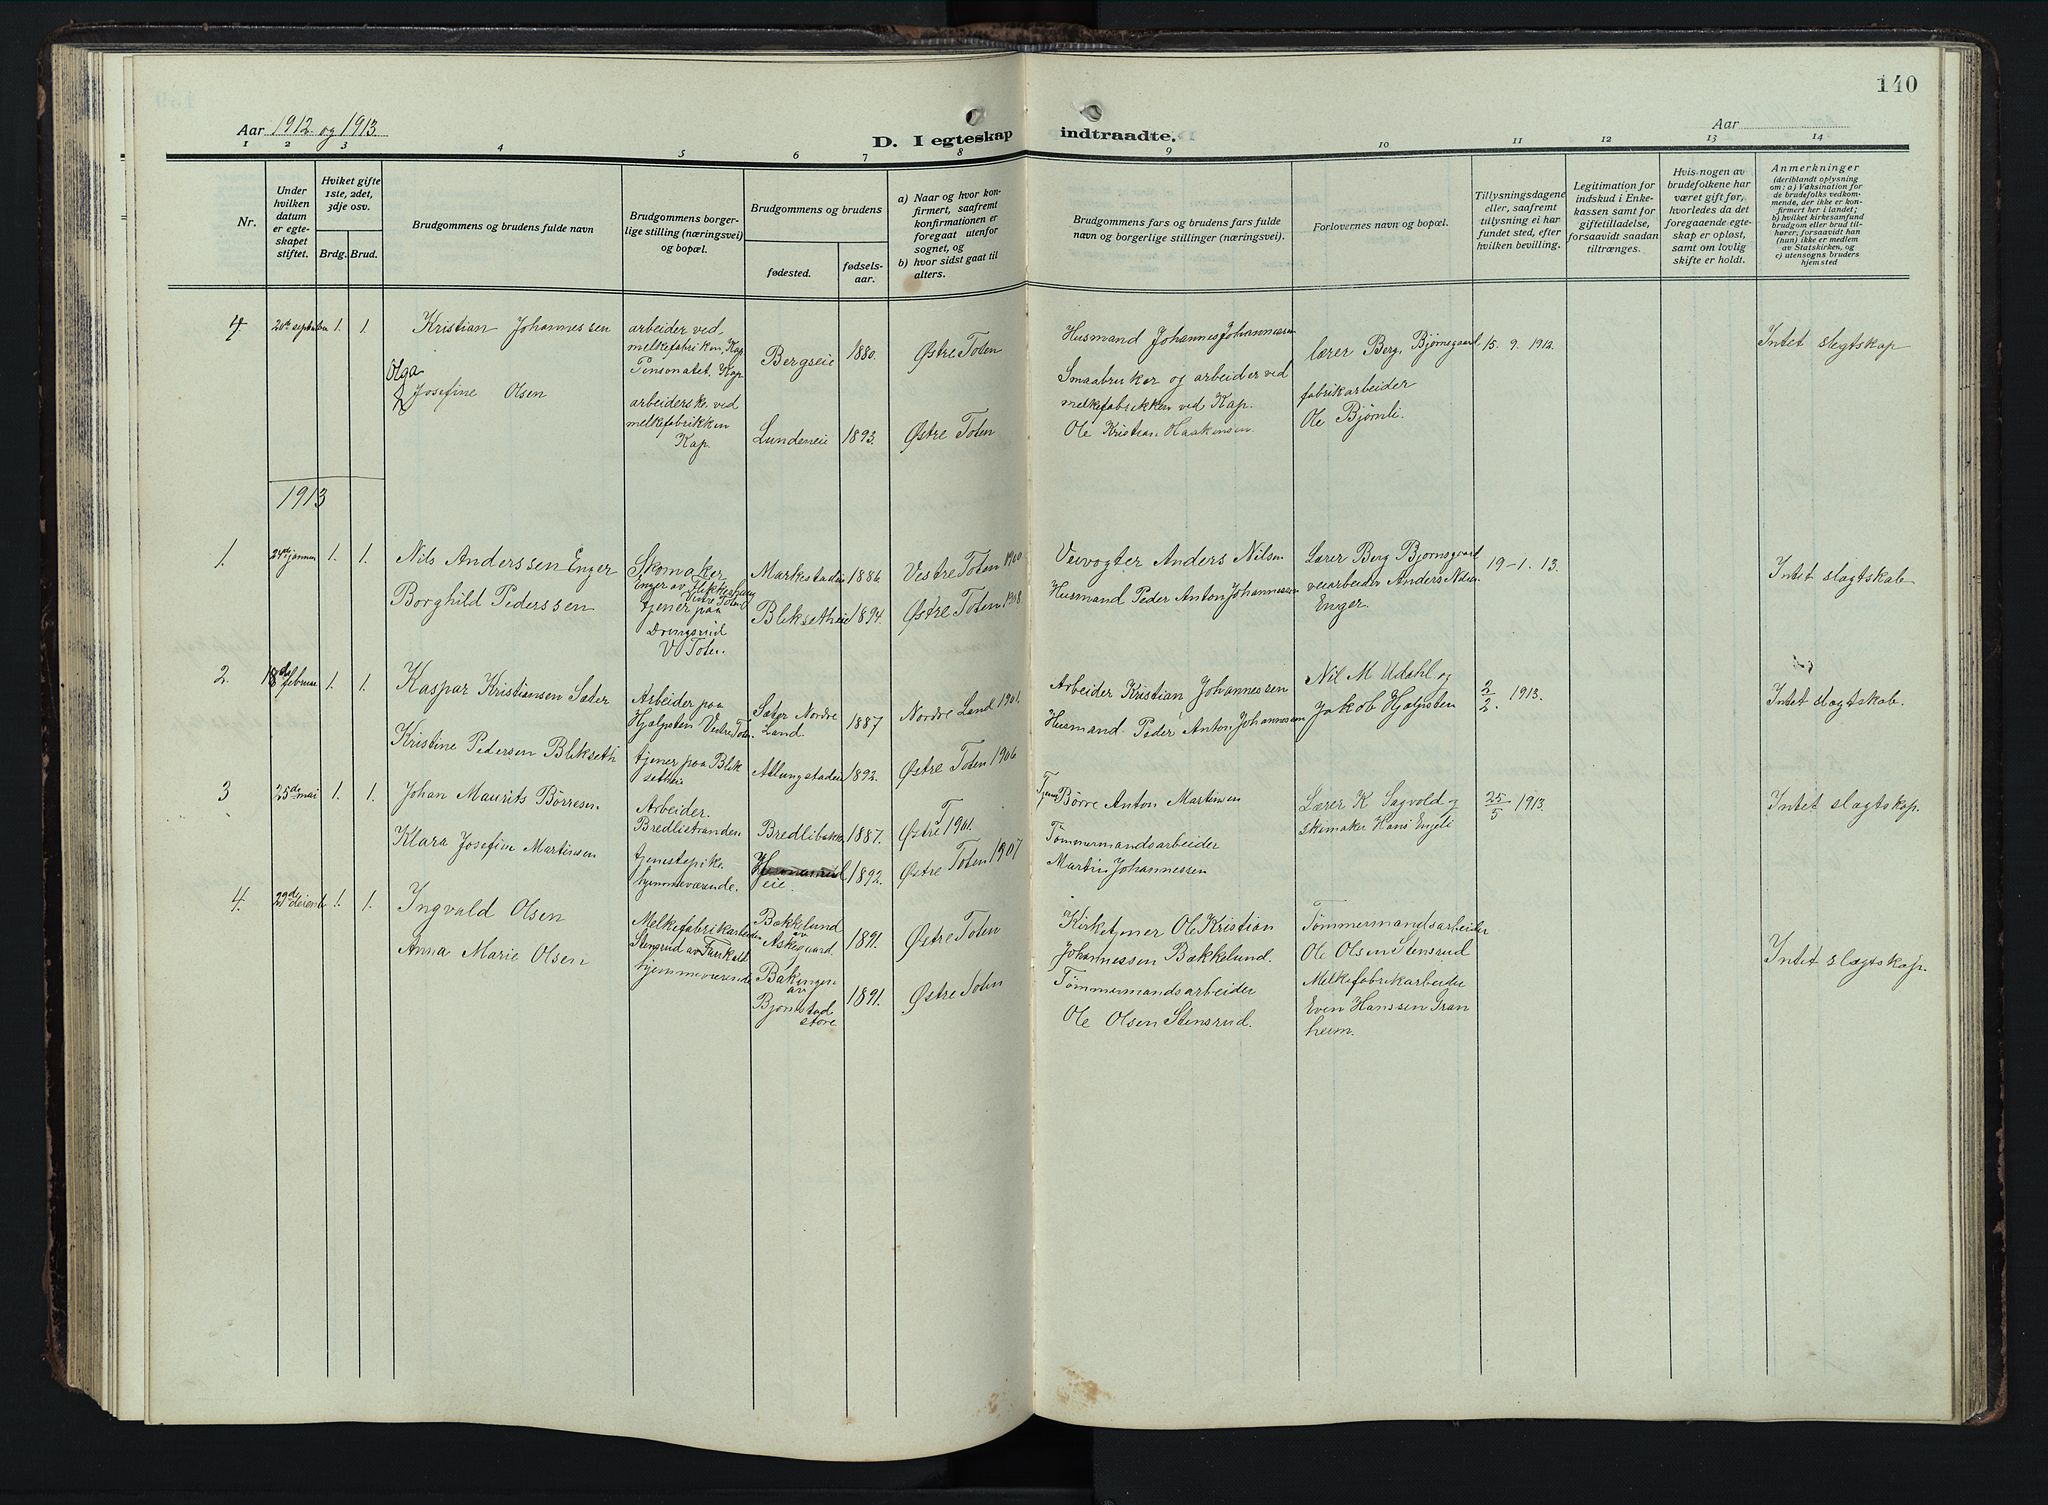 140
Aar 1912 og 1913
D. I egteskap indtraadte.
Aar
1 2 3 4 5 6 7 8 9 10 11 12 13 14
Nr.
Under
hvilken
datum
er egte-
skapet
stiftet.
Hviket gifte
1ste, 2det,
3dje osv.
Brdg. Brud.
Brudgommens og brudens fulde navn
Brudgommens borger-
lige stilling (næringsvei)
og bopæl.
Brudgommens og brudens
fødested.
fødsels-
aar.
a) Naar og hvor kon-
firmert, saafremt
konfirmationen er
foregaat utenfor
sognet, og
b) hvor sidst gaat til
alters.
Brudgommens fars og brudens fars fulde
navn og borgerlige stillinger (næringsvei).
Forlovernes navn og bopæl.
Tillysningsdagene
eller, saafremt
tillysning ei har
fundet sted, efter
hvilken bevilling.
Legitimation for
indskud i Enke-
kassen samt for
giftetilladelse,
forsaavidt saadan
tiltrænges.
Hvis nogen av
brudefolkene har
været gift før,
hvorledes da det
foregaaende egte-
skap er opløst,
samt om lovlig
skifte er holdt.
Anmerkninger
(deriblandt oplysning
om: a) Vaksination for
de brudefolks vedkom-
mende, der ikke er kon-
firmert her i landet;
b) hvilket kirkesamfund
brudgom eller brud til-
hører, forsaavidt han
(hun) ikke er medlem
av Statskirken, og
c) utensogns bruders
hjemsted
4. 20de september 1. 1.
Kristian Johannessen
Olga
Josefine Olsen
arbeider ved
melkefabriken, Kap
Pensonatet. Kap
arbeiderske ved
melkefabrikken
Kap.
Bergseie 1880.
Lundeneie 1893.
Østre Toten
Østre Toten
Husmand Johannes Johannessen
Smaabruker og arbeider ved
melkefabrikken ved Kap.
Ole Kristian Haakensen.
lærer Berg, Bjørnsgaard
fabrikarbeider
Ole Bjørnli.
15. 9. 1912.
Intet slegtskap
1913
1. 24de januar 1. 1.
Nils Anderssen Enger
Borghild Pederssen
Skomaker
Enger av
Vestre Toten
tjener paa
V. Toten.
Markestadeie 1886.
Bleksetheie 1894.
Vestre Toten 1900.
Østre Toten 1908.
Veivogter Anders Nilsen
Husmand Peder Anton Johannessen
Lærer Berg Bjørnsgaard
veiarbeider Anders Nilsen
Enger.
19-1. 13.
Intet slægtskab
2. 18de februar 1. 1.
Kaspar Kristiansen Sæter
Kristine Pedersen Blekseth
Arbeider paa
Hjælpsten Vestre Toten.
tjener paa Blek
setheie
Sæter Nordre
Land 1887
Allungstadeie 1892.
Nordre Land 1901.
Østre Toten 1906
Arbeider Kristian Johannessen
Husmand Peder Anton Johannessen
Nil M Udahl og
Jakob Hjælpsten
2/2. 1913.
Intet slægtskab.
3 25de mai 1. 1.
Johan Maurits Børresen.
Klara Josefine Martinsen
Arbeider.
Bredlistranden
tjenestepike
hjemmeværende.
Bredlibakke 1887.
eie. 1892.
Østre T. 1901.
Østre Toten 1907
Børre Anton Martinsen
Tømmermandsarbeider
Martin Johannessen
Lærer K Sagvold og
skomaker Hans Engeli
25/5 1913.
Intet slægtskap.
4. 29de 1. 1.
Ingvald Olsen
Anna Marie Olsen
Melkefabrikarbeider
Stensrud av
hjemmeværende
Bækkelund
av
Askegaard. 1891.
Bakingen
av
Bjørnstad
store 1891.
Østre Toten
Østre Toten
Kirketjener Ole Kristian
Johannessen Bækkelund.
Tømmermandsarbeider
Ole Olsen Stensrud.
Tømmermandsarbeider
Ole Olsen Stensrud
Melkefabrikarbeider
Even Hanssen Gran
heim.
Intet slægtskap.